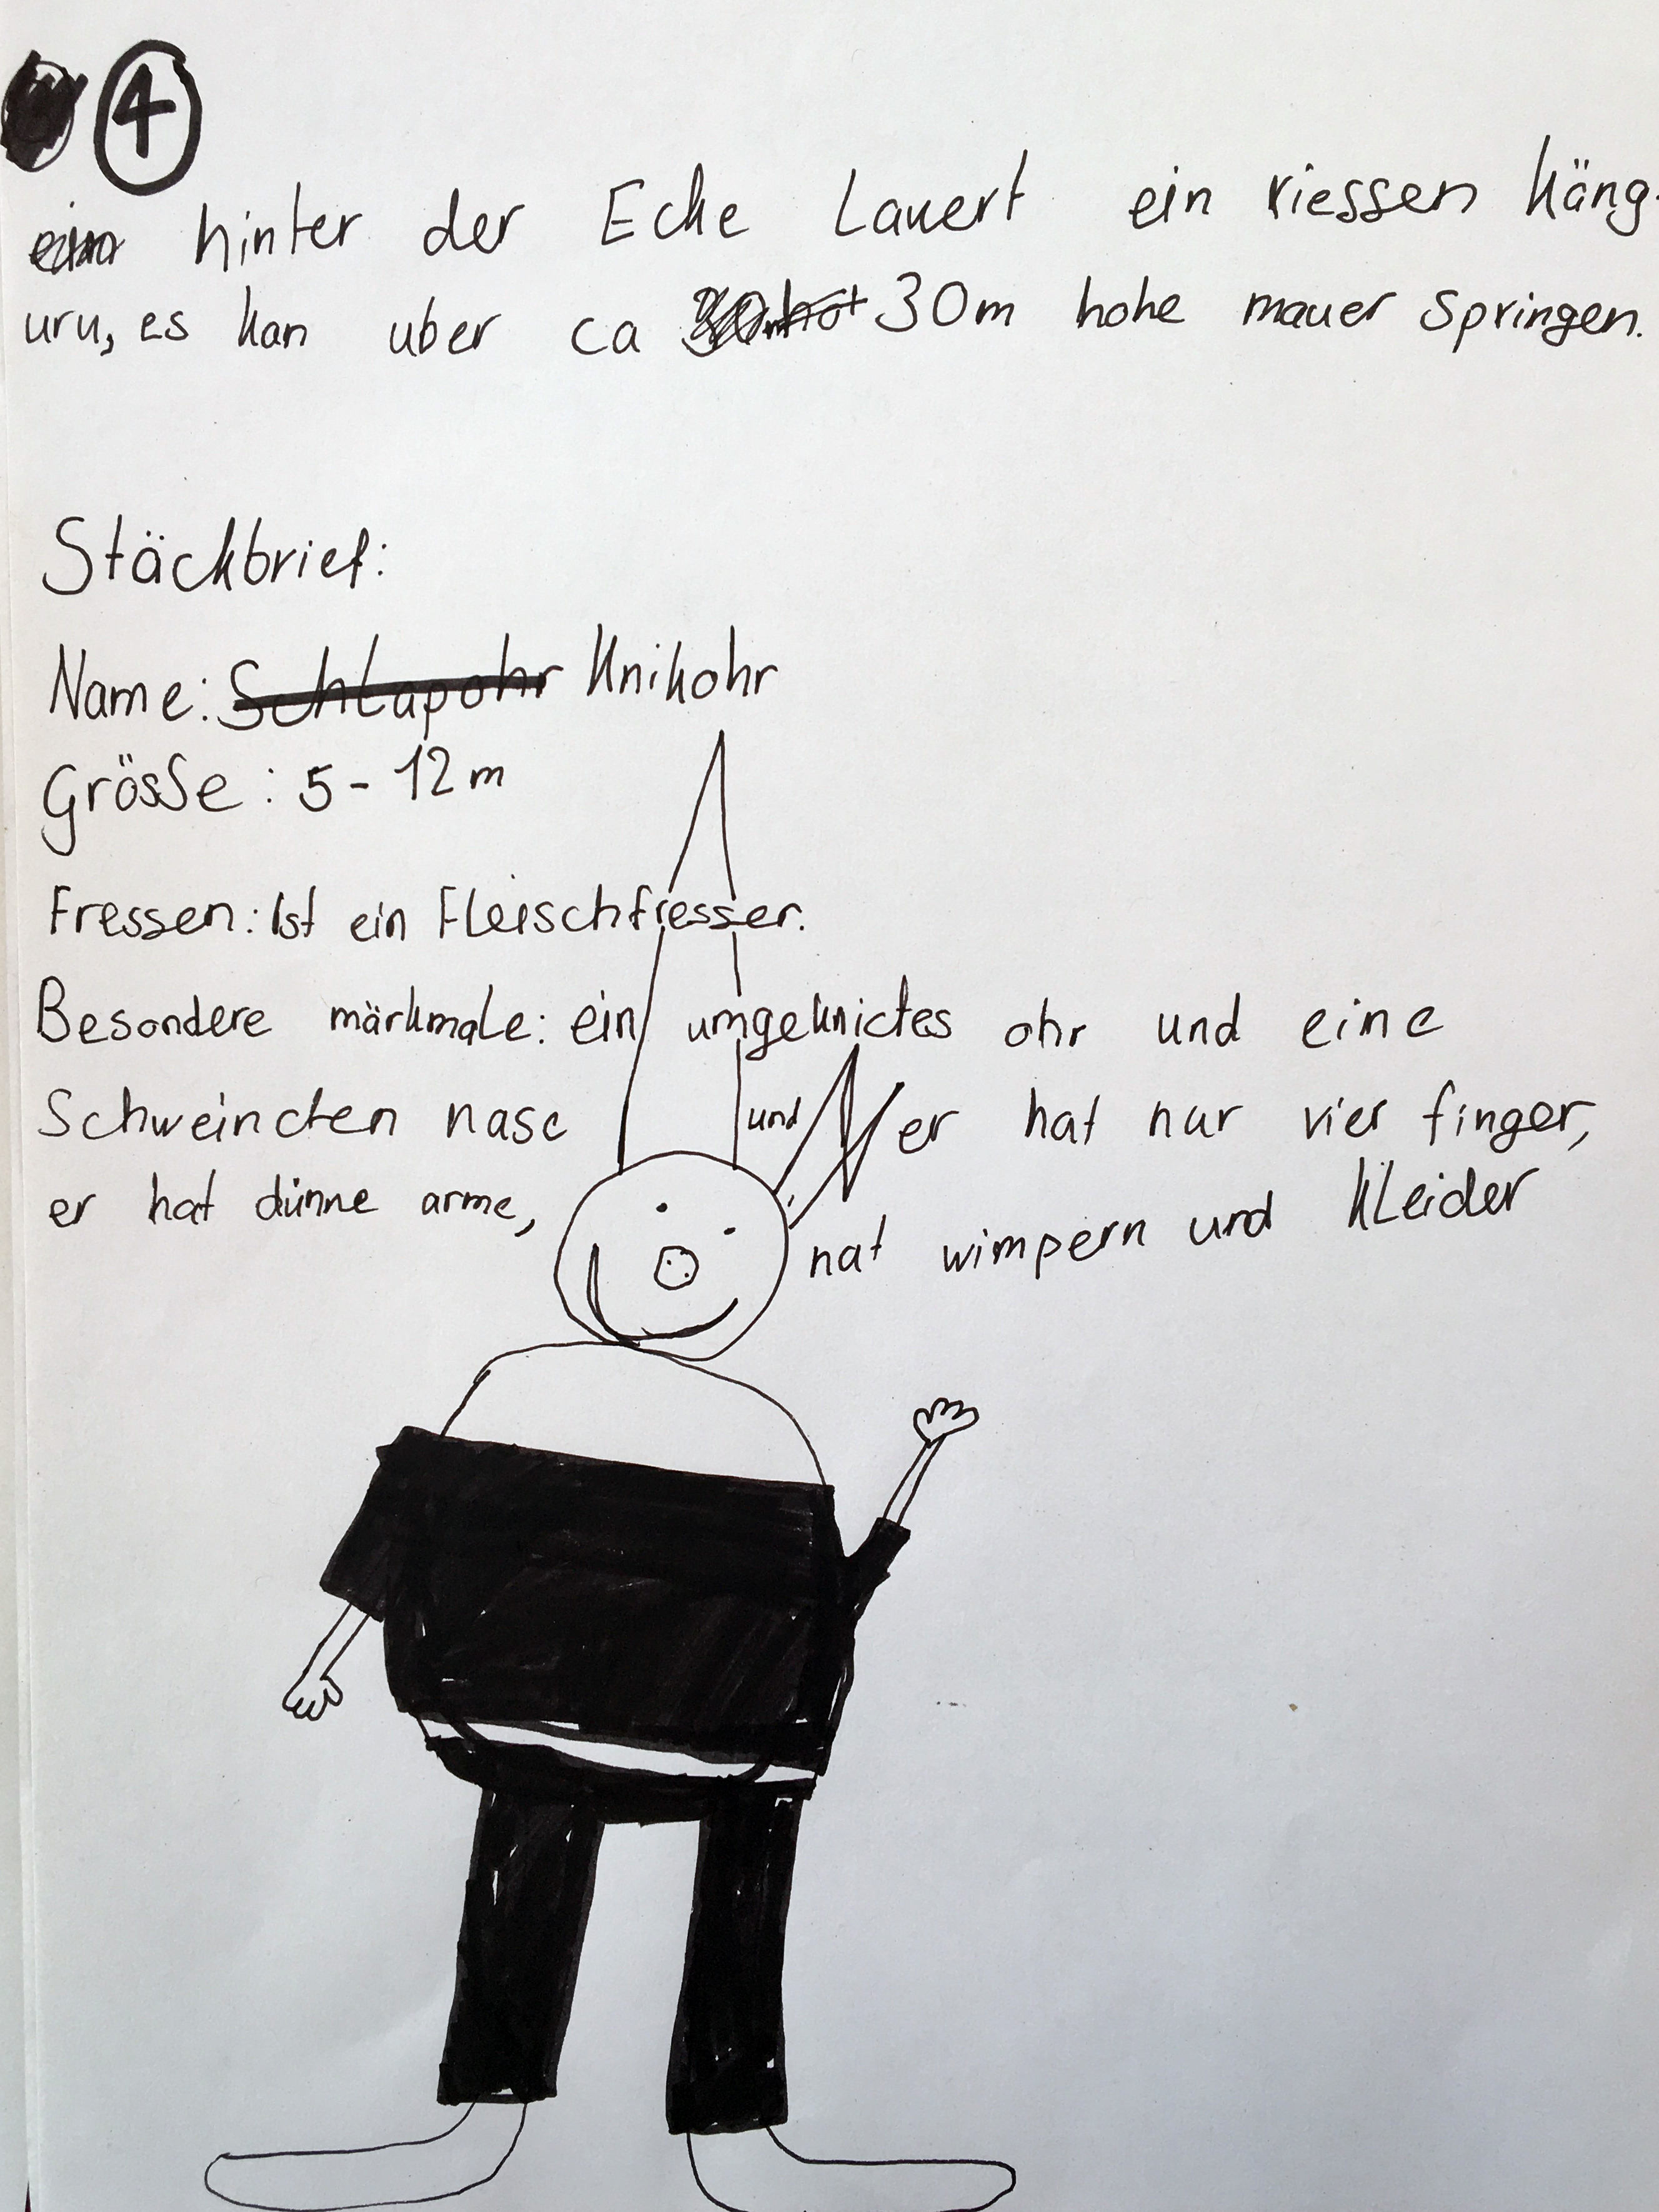 4
hinter der Ecke Lauert ein riessen Käng-
uru, es kan uber ca 30m hohe mauer springen.
Stäckbrief:
Name: Schlapohr Knikohr
Grösse: 5-12m
Fressen: Ist ein Fleischfresser.
Besondere märkmale: ein umgeknictes ohr und eine
Schweinchen nase und er hat nur vier finger,
er hat dünne arme, hat wimpern und Kleider